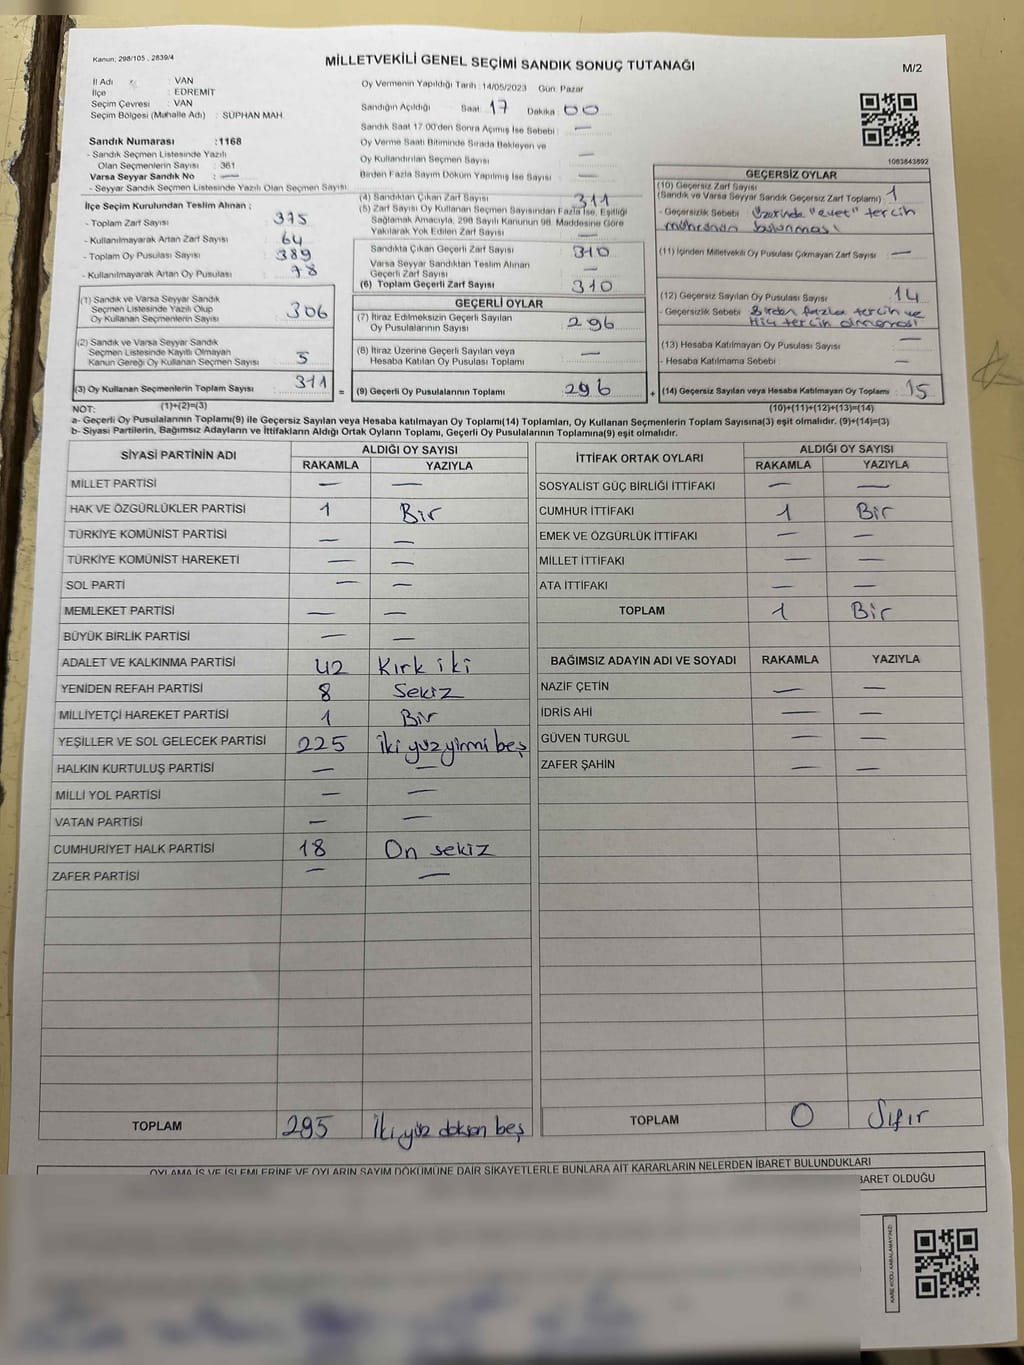 Kanun; 298/105 , 2839/4
MİLLETVEKİLİ GENEL SEÇİMİ SANDIK SONUÇ TUTANAĞI
M/2
İl Adı : VAN
İlçe : EDREMİT
Seçim Çevresi : VAN
Seçim Bölgesi (Mahalle Adı) : SÜPHAN MAH
Oy Vermenin Yapıldığı Tarih : 14/05/2023 Gün: Pazar
Sandığın Açıldığı Saat : 17 Dakika : 00
Sandık Saat 17:00'den Sonra Açılmış İse Sebebi : —
Oy Verme Saati Bitiminde Sırada Bekleyen ve
Oy Kullandırılan Seçmen Sayısı : —
Birden Fazla Sayım Döküm Yapılmış İse Sayısı : —
Sandık Numarası :1168
- Sandık Seçmen Listesinde Yazılı
Olan Seçmenlerin Sayısı : 361
Varsa Seyyar Sandık No : —
- Seyyar Sandık Seçmen Listesinde Yazılı Olan Seçmen Sayısı:
1083843892
İlçe Seçim Kurulundan Teslim Alınan ;
- Toplam Zarf Sayısı : 375
- Kullanılmayarak Artan Zarf Sayısı : 64
- Toplam Oy Pusulası Sayısı : 389
- Kullanılmayarak Artan Oy Pusulası : 78
(1) Sandık ve Varsa Seyyar Sandık
Seçmen Listesinde Yazılı Olup
Oy Kullanan Seçmenlerin Sayısı : 306
(2) Sandık ve Varsa Seyyar Sandık
Seçmen Listesinde Kayıtlı Olmayan
Kanun Gereği Oy Kullanan Seçmen Sayısı : 5
(3) Oy Kullanan Seçmenlerin Toplam Sayısı : 311
(1)+(2)=(3)
(4) Sandıktan Çıkan Zarf Sayısı : 311
(5) Zarf Sayısı Oy Kullanan Seçmen Sayısından Fazla İse, Eşitliği
Sağlamak Amacıyla, 298 Sayılı Kanunun 98. Maddesine Göre
Yakılarak Yok Edilen Zarf Sayısı : —
Sandıkta Çıkan Geçerli Zarf Sayısı : 310
Varsa Seyyar Sandıktan Teslim Alınan
Geçerli Zarf Sayısı : —
(6) Toplam Geçerli Zarf Sayısı : 310
GEÇERLİ OYLAR
(7) İtiraz Edilmeksizin Geçerli Sayılan
Oy Pusulalarının Sayısı : 296
(8) İtiraz Üzerine Geçerli Sayılan veya
Hesaba Katılan Oy Pusulası Toplamı : —
= (9) Geçerli Oy Pusulalarının Toplamı : 296
GEÇERSİZ OYLAR
(10) Geçersiz Zarf Sayısı
(Sandık ve Varsa Seyyar Sandık Geçersiz Zarf Toplamı) : 1
- Geçersizlik Sebebi : Üzerinde "evet" tercih
mührünün bulunması
(11) İçinden Milletvekili Oy Pusulası Çıkmayan Zarf Sayısı : —
(12) Geçersiz Sayılan Oy Pusulası Sayısı : 14
- Geçersizlik Sebebi : Birden fazla tercih ve
Hiç tercih olmaması
(13) Hesaba Katılmayan Oy Pusulası Sayısı : —
- Hesaba Katılmama Sebebi : —
+ (14) Geçersiz Sayılan veya Hesaba Katılmayan Oy Toplamı : 15
(10)+(11)+(12)+(13)=(14)
NOT:
a- Geçerli Oy Pusulalarının Toplamı(9) ile Geçersiz Sayılan veya Hesaba katılmayan Oy Toplamı(14) Toplamları, Oy Kullanan Seçmenlerin Toplam Sayısına(3) eşit olmalıdır. (9)+(14)=(3)
b- Siyasi Partilerin, Bağımsız Adayların ve İttifakların Aldığı Ortak Oyların Toplamı, Geçerli Oy Pusulalarının Toplamına(9) eşit olmalıdır.
SİYASİ PARTİNİN ADI ALDIĞI OY SAYISI
RAKAMLA YAZIYLA
MİLLET PARTİSİ — —
HAK VE ÖZGÜRLÜKLER PARTİSİ 1 Bir
TÜRKİYE KOMÜNİST PARTİSİ — —
TÜRKİYE KOMÜNİST HAREKETİ — —
SOL PARTİ — —
MEMLEKET PARTİSİ — —
BÜYÜK BİRLİK PARTİSİ — —
ADALET VE KALKINMA PARTİSİ 42 Kırk iki
YENİDEN REFAH PARTİSİ 8 Sekiz
MİLLİYETÇİ HAREKET PARTİSİ 1 Bir
YEŞİLLER VE SOL GELECEK PARTİSİ 225 iki yüz yirmi beş
HALKIN KURTULUŞ PARTİSİ — —
MİLLİ YOL PARTİSİ — —
VATAN PARTİSİ — —
CUMHURİYET HALK PARTİSİ 18 On sekiz
ZAFER PARTİSİ — —
TOPLAM 295 İki yüz doksan beş
İTTİFAK ORTAK OYLARI ALDIĞI OY SAYISI
RAKAMLA YAZIYLA
SOSYALİST GÜÇ BİRLİĞİ İTTİFAKI — —
CUMHUR İTTİFAKI 1 Bir
EMEK VE ÖZGÜRLÜK İTTİFAKI — —
MİLLET İTTİFAKI — —
ATA İTTİFAKI — —
TOPLAM 1 Bir
BAĞIMSIZ ADAYIN ADI VE SOYADI RAKAMLA YAZIYLA
NAZİF ÇETİN — —
İDRİS AHİ — —
GÜVEN TURGUL — —
ZAFER ŞAHİN — —
TOPLAM 0 Sıfır
OYLAMA İŞ VE İŞLEMLERİNE VE OYLARIN SAYIM DÖKÜMÜNE DAİR ŞİKAYETLERLE BUNLARA AİT KARARLARIN NELERDEN İBARET BULUNDUKLARI
BARET OLDUĞU
KARE KODU KARALAMAYINIZ!